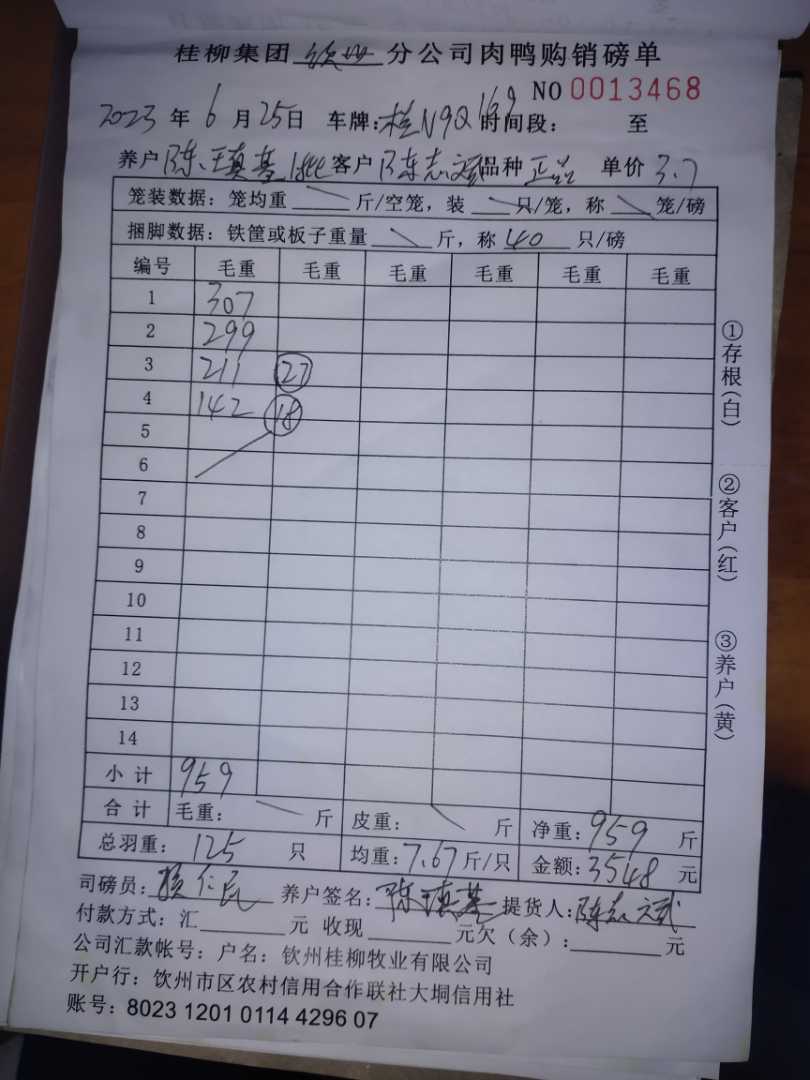 桂柳集团 钦州 分公司肉鸭购销磅单
NO 0013468
2023 年 6 月 25 日 车牌：桂N9Q169 时间段： 至
养户 陈瑱基 客户 陈志斌 品种 正品 单价 3.7
笼装数据：笼均重 斤/空笼，装 只/笼，称 笼/磅
捆脚数据：铁筐或板子重量 斤，称 40 只/磅
编号 毛重 毛重 毛重 毛重 毛重 毛重
1 307
2 299
3 211 27
4 142 18
5
6
7
8
9
10
11
12
13
14
小计 959
合计 毛重： 斤 皮重： 斤 净重：959 斤
总羽重：125 只 均重：7.67 斤/只 金额：3548 元
司磅员： 仁民 养户签名：陈瑱基 提货人：陈志斌
付款方式：汇 元 收现 元欠（余）： 元
公司汇款帐号：户名：钦州桂柳牧业有限公司
开户行：钦州市区农村信用合作联社大垌信用社
账号：8023 1201 0114 4296 07
①存根（白）
②客户（红）
③养户（黄）